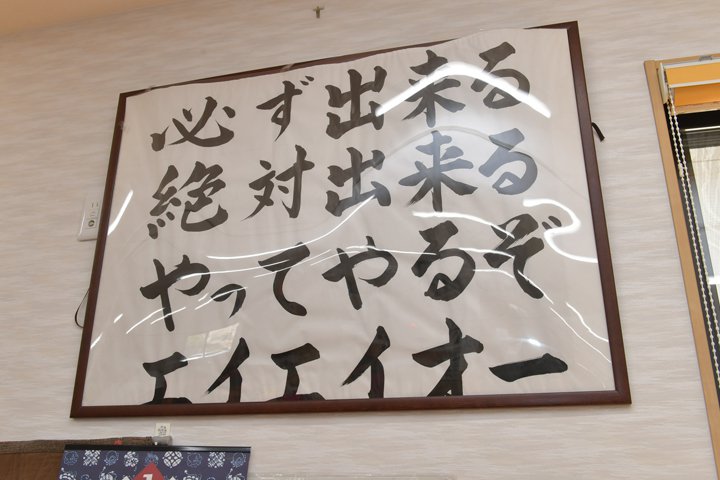 必ず出来る
絶対出来る
やってやるぞ
エイエイオー